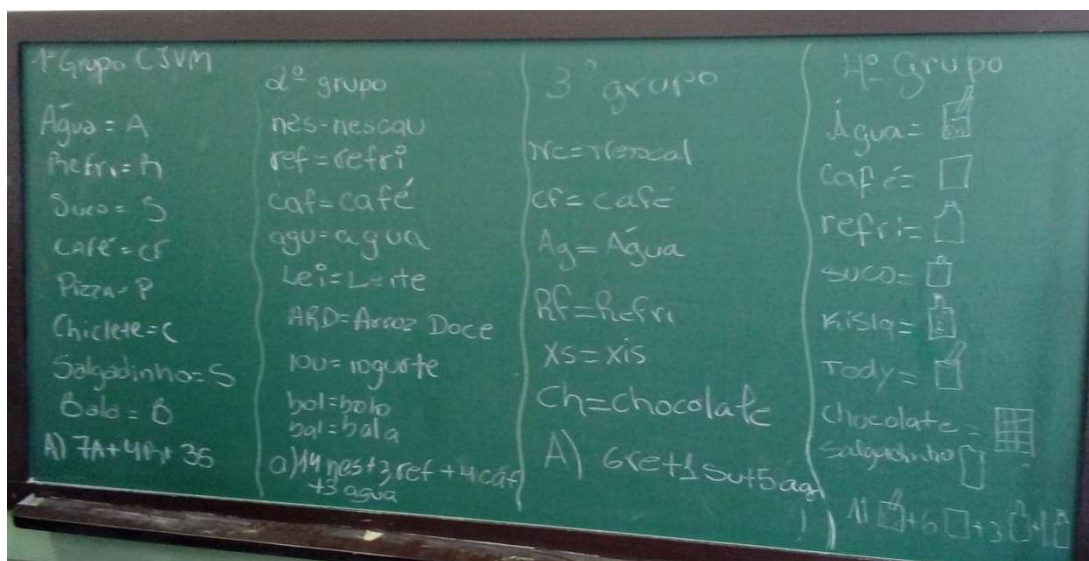 1º Grupo CJVM
Água = A
Refri = R
Suco = S
CAFÉ = CF
Pizza = P
Chiclete = C
Salgadinho = S
Bolo = B
A) 7A+4R+3S
2º grupo
nes=nescau
ref=refri
caf=café
agu=agua
Lei=Leite
ARD=Arroz Doce
iou=iogurte
bol=bolo
bal=bala
a) 14 nes+3 ref+4 caf
+3 agua
3º grupo
cf=café
Ag=Água
Rf=Refri
Xs=xis
Ch=chocolate
A) 6re+1su+5ag
4º Grupo
Água=
Café=
refri=
suco=
Kisla=
Tody=
chocolate=
Salgadinho
11 +6 +3 +1